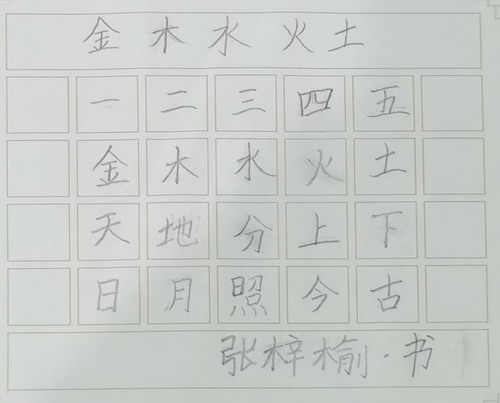 金木水火土
一二三四五
金木水火土
天地分上下
日月照今古
张梓榆·书